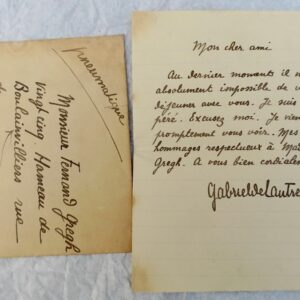 pneumatique
Monsieur Fernand Gregh
Vingt cinq. Hameau de
Boulainvilliers rue
de
Mon cher ami
Au dernier moments il
absolument impossible de
déjeuner avec vous. Je suis
péré. Excusez moi. Je
promptement vous voir. Mes
hommages respectueux à
Gregh. A vous bien
Gabriel de Lautre